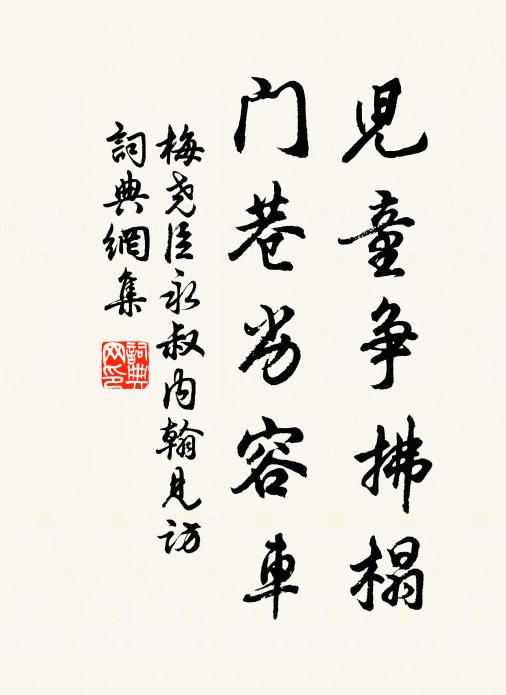 児童争拂榻
門巷劣容車
梅尧臣永叔内翰見访
詞典網集
詞典网印